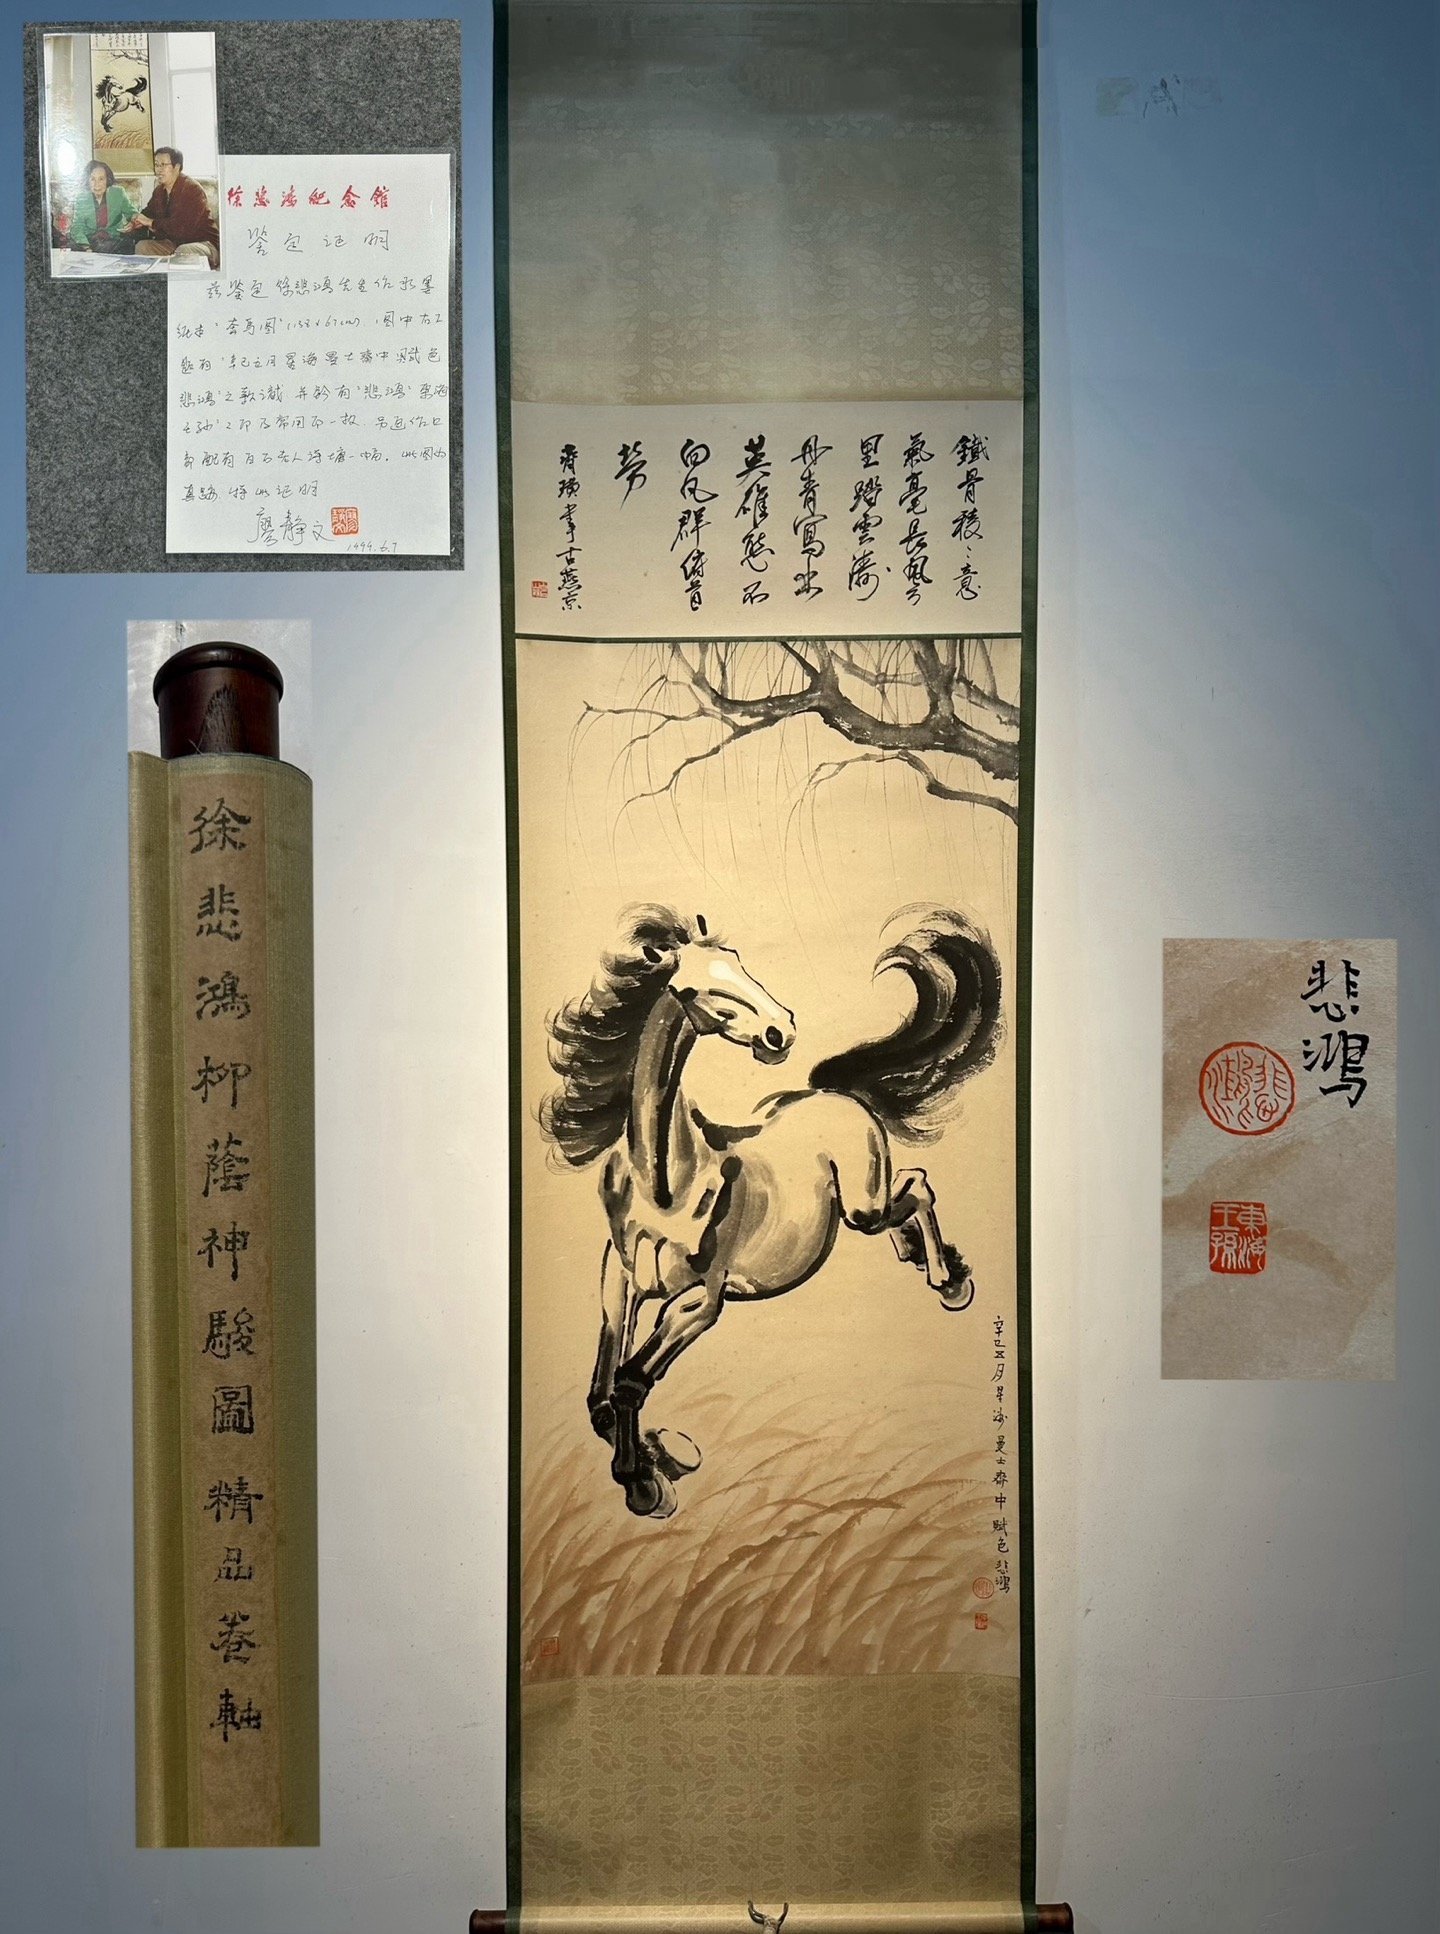 徐悲鴻紀念館
鉴定证明
兹鉴定徐悲鸿先生作水墨
纸本"奔马图"(133×67cm).图中右下
题有"辛巳五月星海曼士斋中赋色
悲鸿"之款识 并钤有"悲鸿" 东海
王孙"之印及常用印一枚.
真迹.特此证明
廖静文
1999.6.7
徐悲鴻柳蔭神駿圖精品卷軸
鐵骨稜〻意
氣豪長風萬
里踏雲濤
丹青寫出
英雄態不
向凡群俯首
勞
齊璜書于古燕京
辛巳五月星洲曼士齋中賦色悲鴻
悲鴻
東海王孫